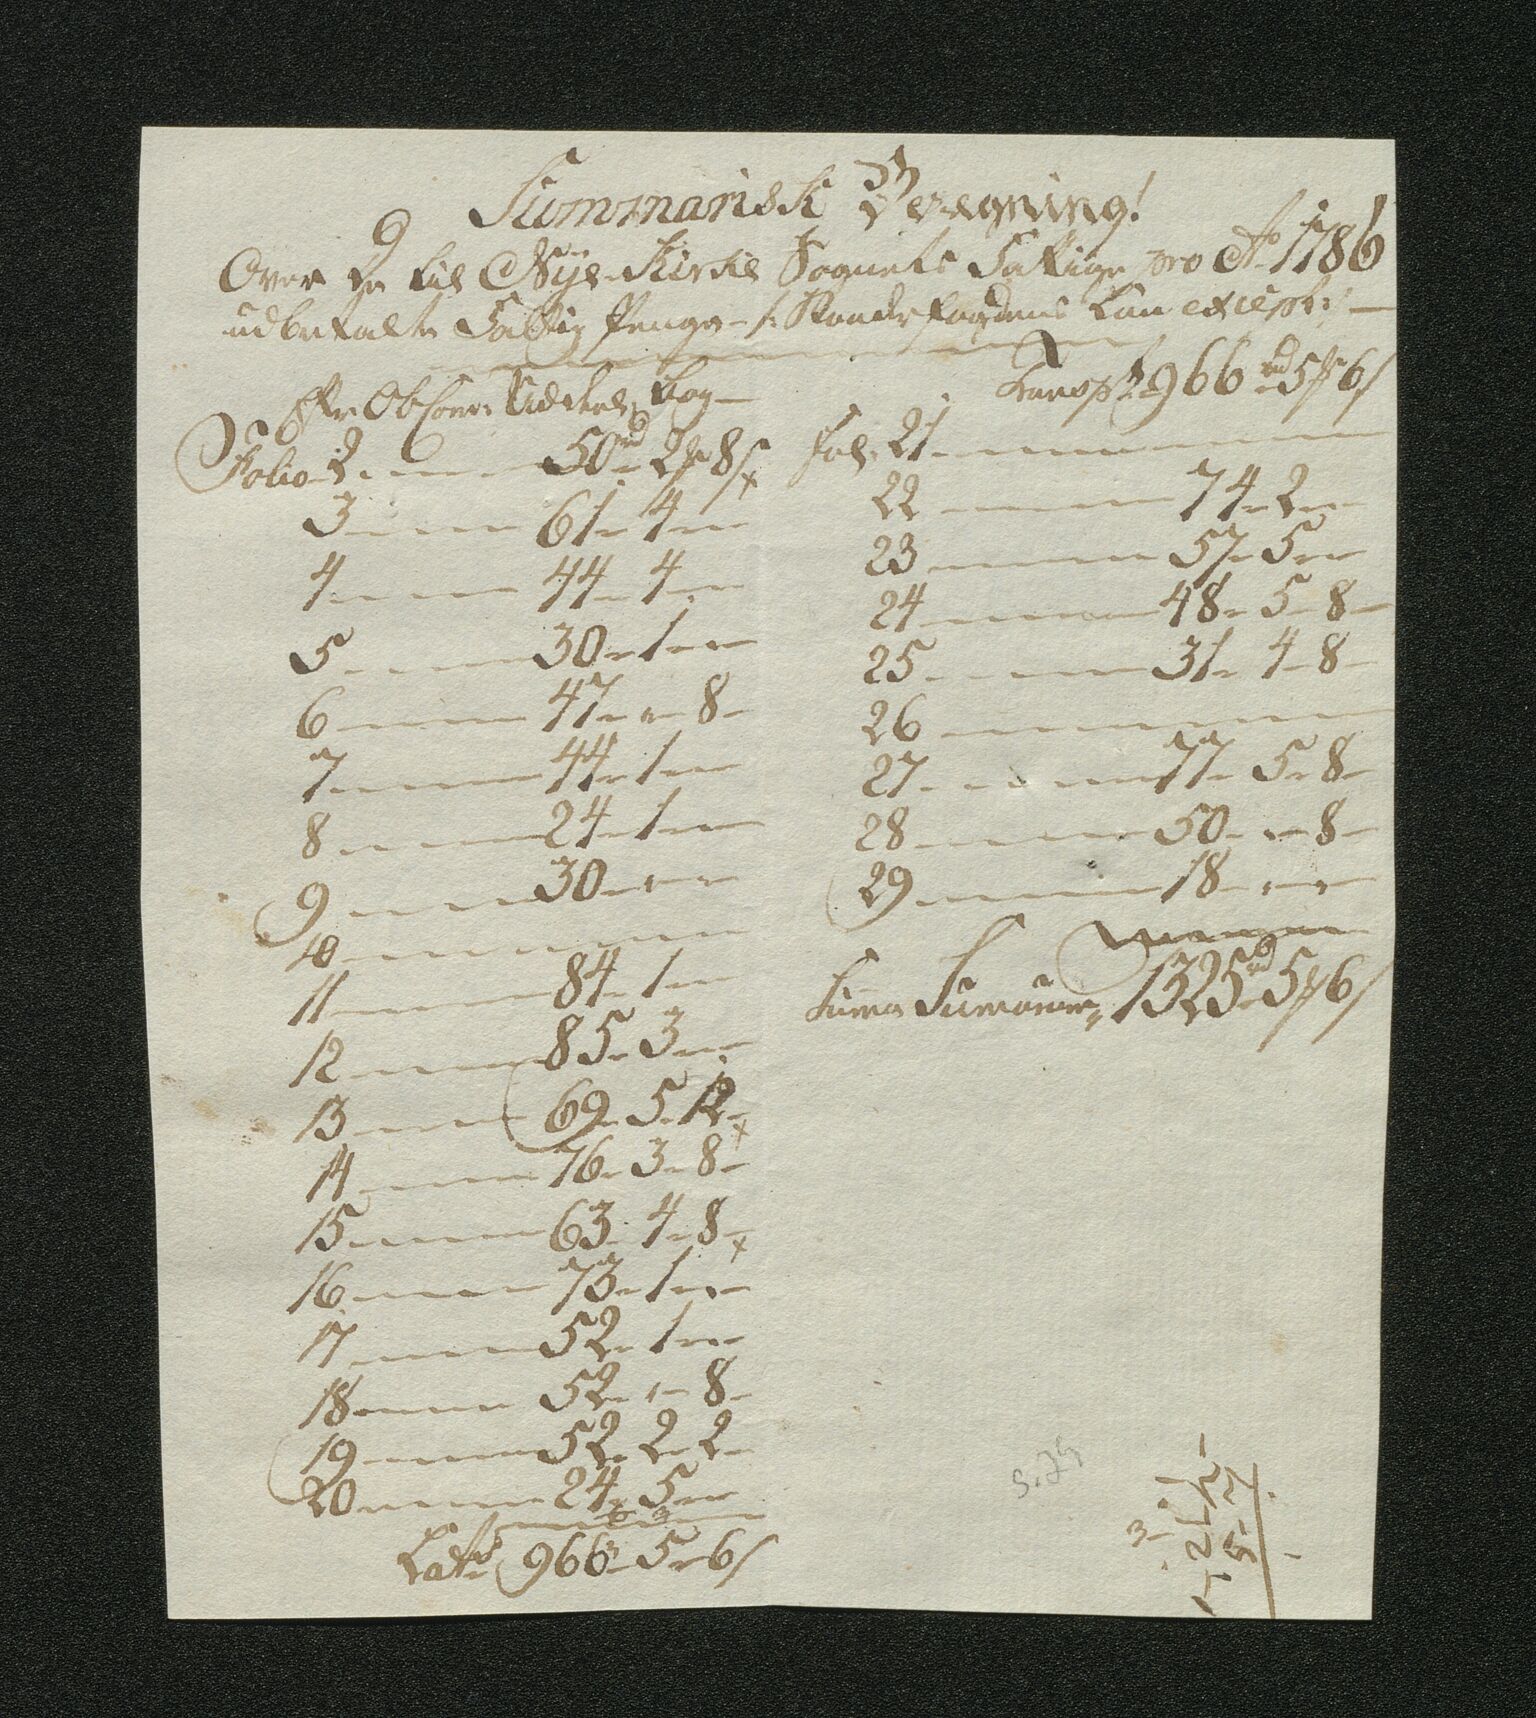 Summarisk Beregning!
9
Over de til Nÿe-Kirke Sognets Fattige pro Ao. 1786
udbetalte Fattig Penge
Folio 2. 50 rd 2 8
3 61 - 4
4 44 - 4
5 30 - 1
6 47 - " - 8
7 44 - 1
8 24 - 1
9 30 - " - "
10
11 84 - 1
12 85 - 3
13 69 - 5 - 12
14 76 - 3 - 8
15 63 - 4 - 8
16 73 - 1
17 52 - 1
18 52 - " - 8
19 52 - 2 - 2
20 24 - 5
Lat. 966 - 5 - 6
Transpt. 966 rd 5 6
Fol. 21
22 74 - 2
23 57 - 5
24 48 - 5 - 8
25 31 - 4 - 8
26
27 77 - 5 - 8
28 50 - " - 8
29 18 - " - "
Summa Summarum 1325 rd 5 6